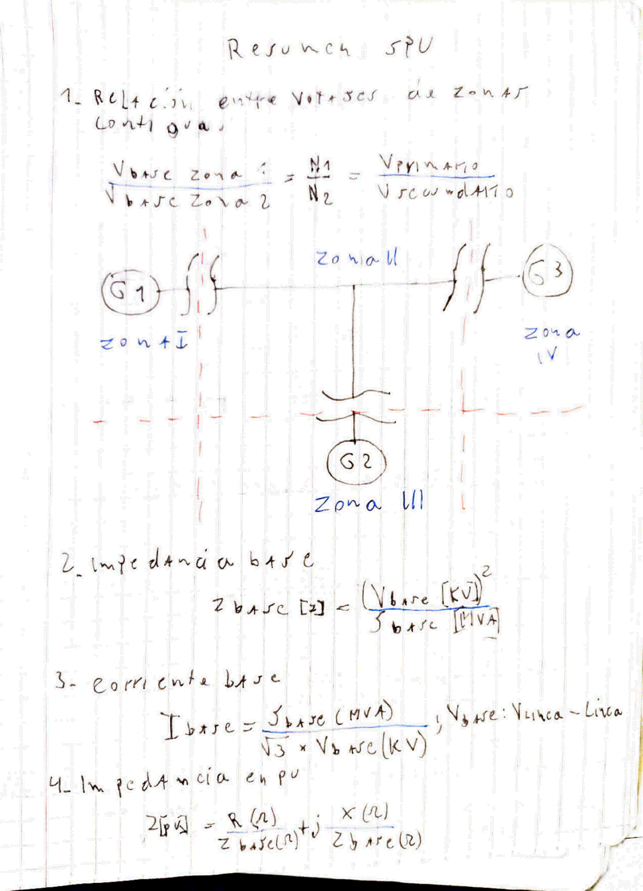 Resumen SPU
1- Relación entre Voltajes de zonas
contiguas
Vbase zona 1 / Vbase zona 2 = N1 / N2 = Vprimario / Vsecundario
zona II
G1
G3
zona I
zona IV
G2
zona III
2- Impedancia base
Z base [z] = (Vbase [KV])² / Sbase [MVA]
3- corriente base
Ibase = Sbase (MVA) / √3 × Vbase (KV) , Vbase: VLinea - Linea
4- Impedancia en pu
Z[pu] = R (Ω) / Z base(Ω) + j X (Ω) / Z base (Ω)